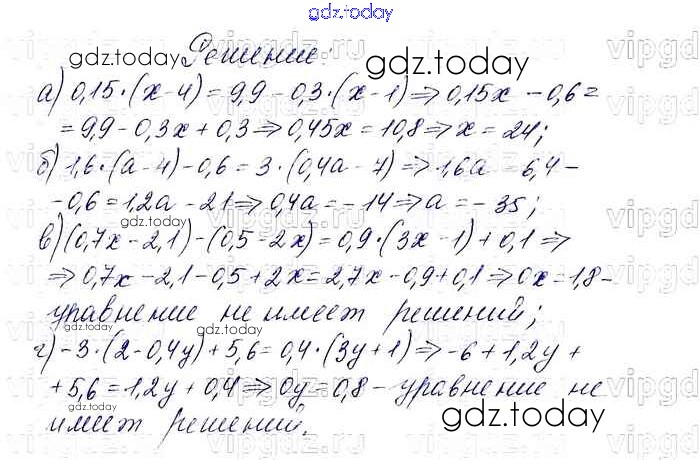 gdz.today
Решение:
а) 0,15·(x-4)=9,9-0,3·(x-1)⇒0,15x-0,6=
=9,9-0,3x+0,3⇒0,45x=10,8⇒x=24;
б) 1,6·(a-4)-0,6=3·(0,4a-7)⇒1,6a-6,4-
-0,6=1,2a-21⇒0,4a=-14⇒a=-35;
в) (0,7x-2,1)-(0,5-2x)=0,9·(3x-1)+0,1⇒
⇒0,7x-2,1-0,5+2x=2,7x-0,9+0,1⇒0x=1,8-
уравнение не имеет решений;
г) -3·(2-0,4y)+5,6=0,4·(3y+1)⇒-6+1,2y+
+5,6=1,2y+0,4⇒0y=0,8-уравнение не
имеет решений.
gdz.today
gdz.today
gdz.today
gdz.today
gdz.today
gdz.today
gdz.today